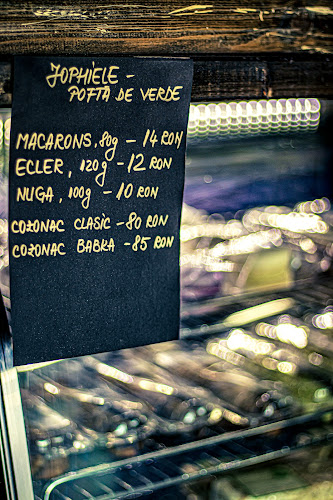 JOPHIELE -
POFTA DE VERDE
MACARONS, 80g - 14 RON
ECLER, 120g - 12 RON
NUGA, 100g - 10 RON
COZONAC CLASIC - 80 RON
COZONAC BABKA - 85 RON